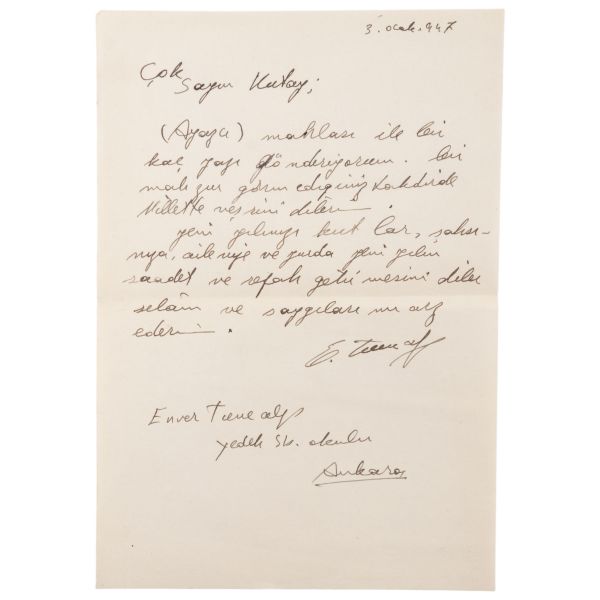 3. ocak. 947
Çok
Sayın Kutay;
mahlası ile bir
kaç yazı gönderiyorum. bir
mahzur görmediğiniz takdirde
Millette neşrini dilerim.
yeni yılınızı kutlar, şahsı-
nıza, ailenize ve yurda yeni yılın
saadet ve refah getirmesini diler
selâm ve saygılarımı arz
ederim.
Enver Tunalp
yedek Sb. okulu
Ankara